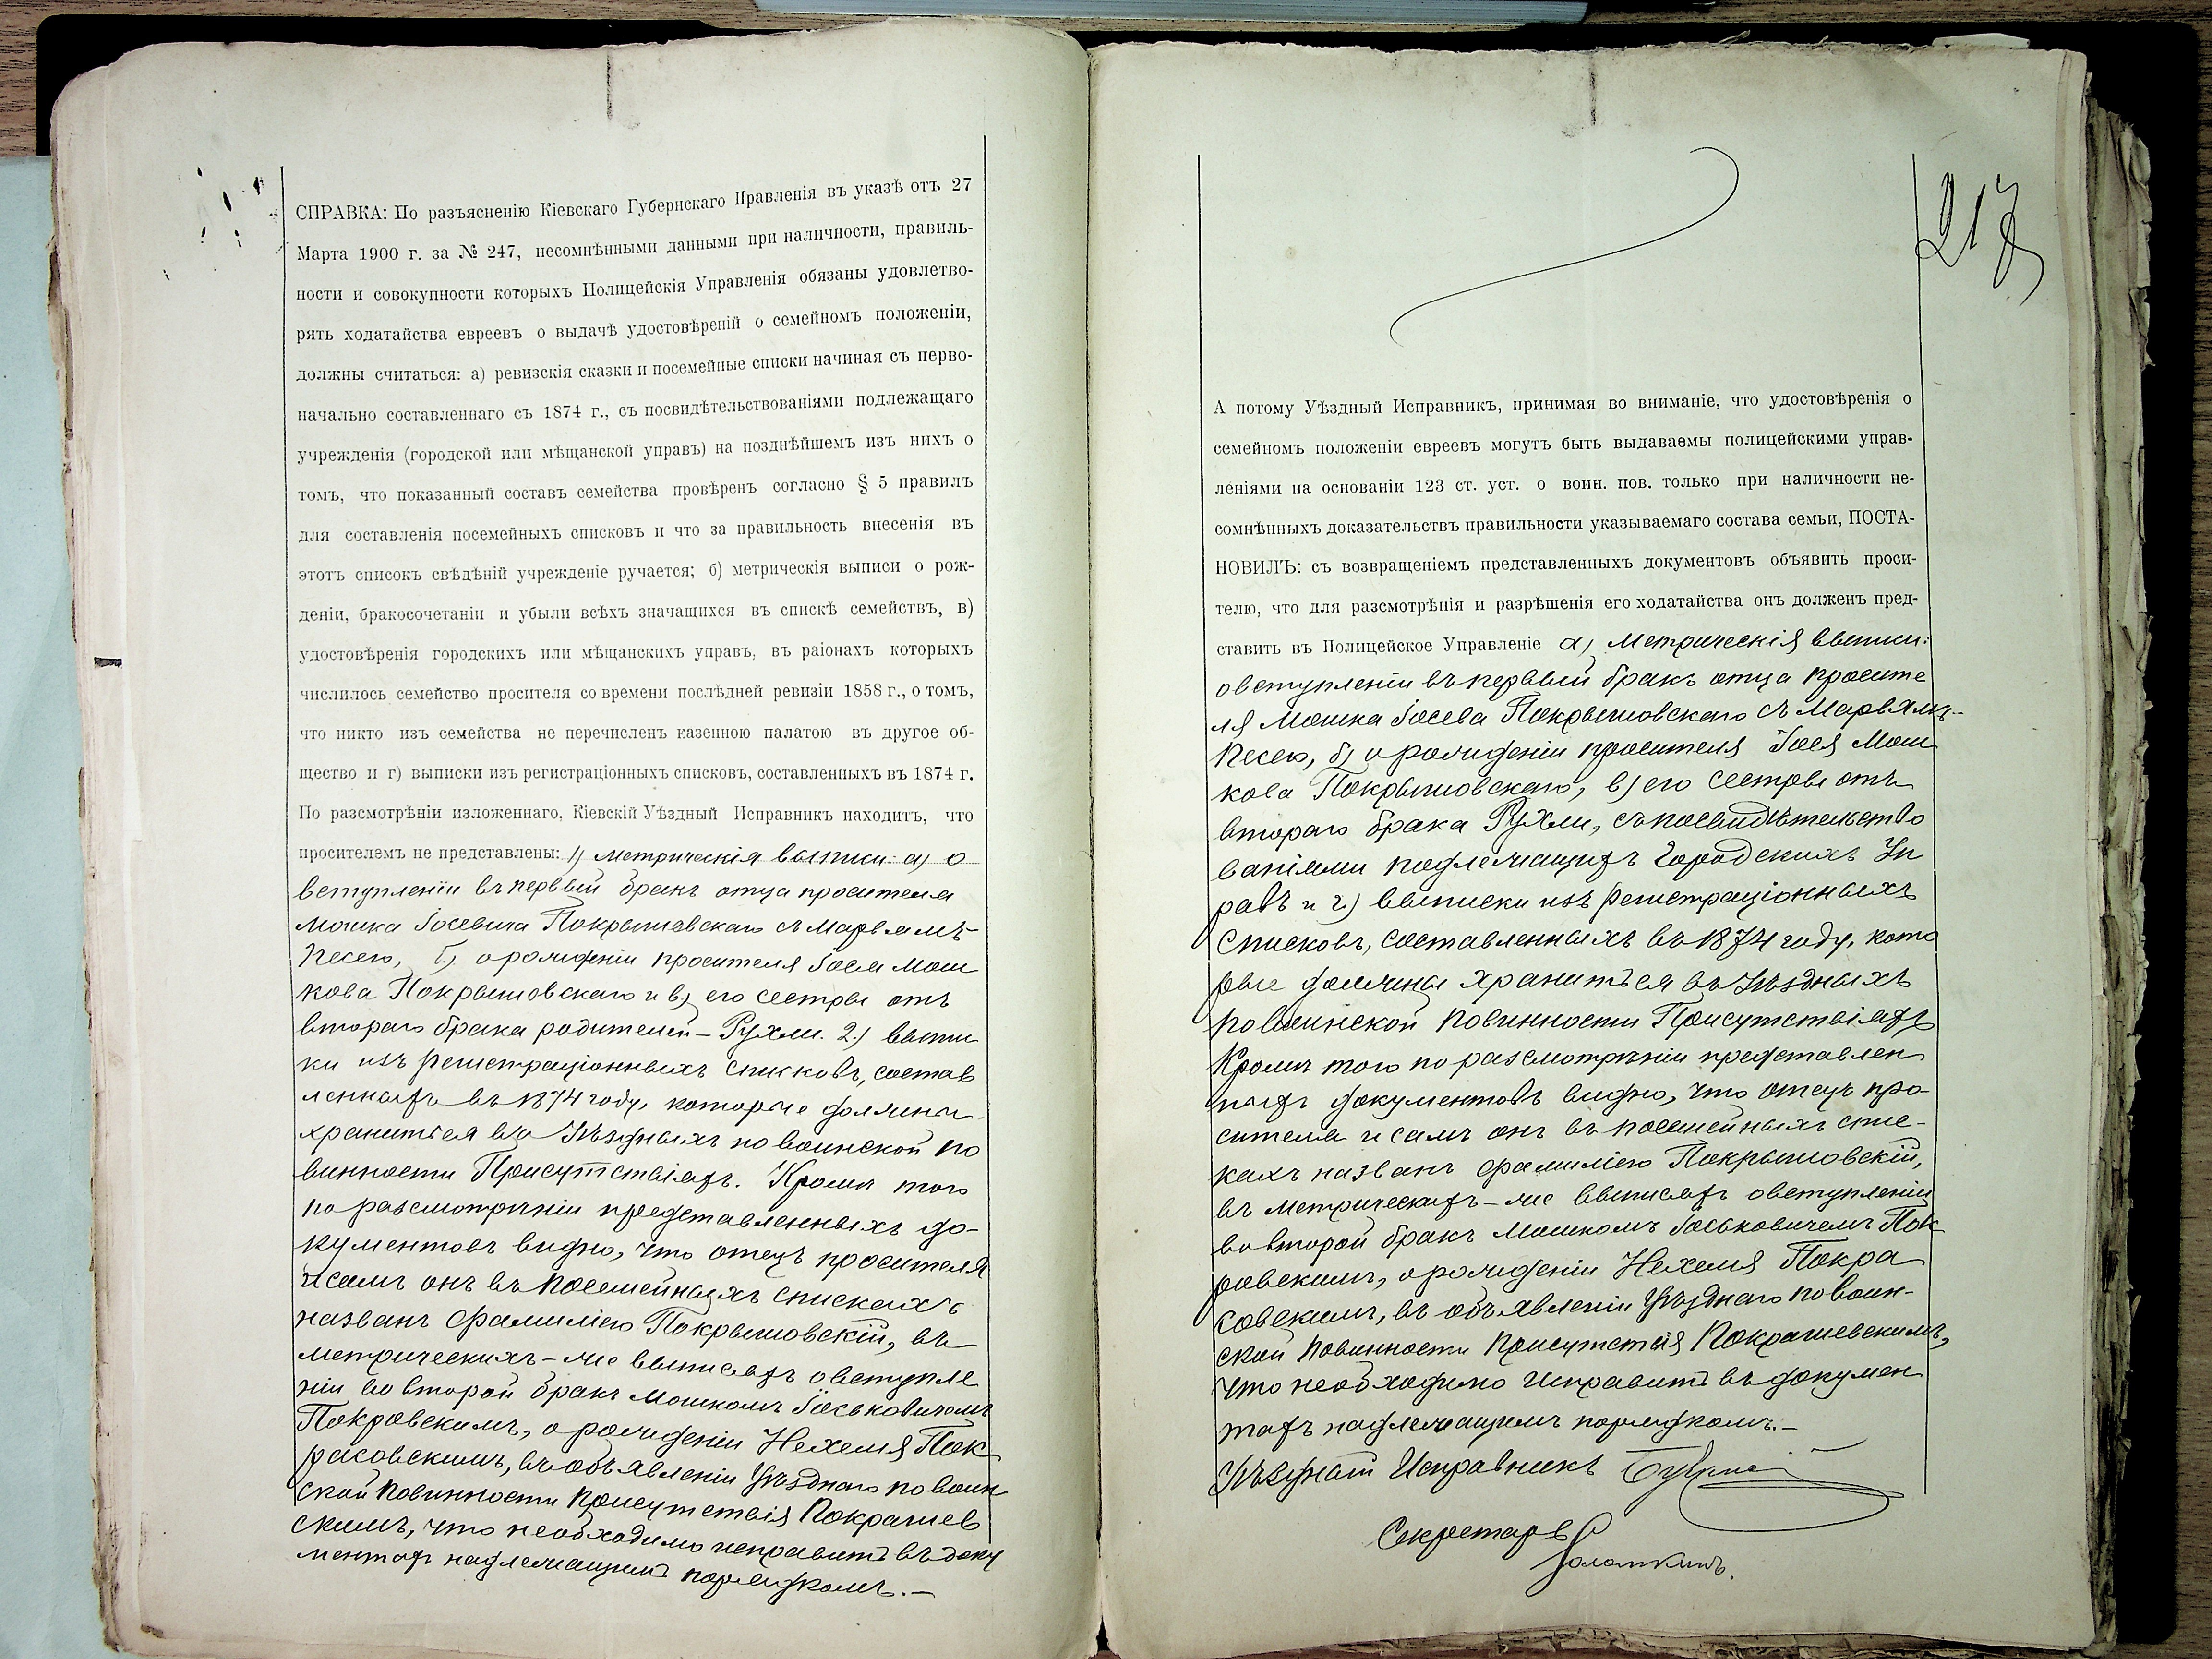 СПРАВКА: По разъясненію Кіевскаго Губернскаго Правленія въ указѣ отъ 27
Марта 1900 г. за № 247, несомнѣнными данными при наличности, правиль-
ности и совокупности которыхъ Полицейскія Управленія обязаны удовлетво-
рять ходатайства евреевъ о выдачѣ удостовѣреній о семейномъ положеніи,
должны считаться: а) ревизскія сказки и посемейные списки начиная съ перво-
начально составленнаго съ 1874 г., съ посвидѣтельствованіями подлежащаго
учрежденія (городской или мѣщанской управъ) на позднѣйшемъ изъ нихъ о
томъ, что показанный составъ семейства провѣренъ согласно § 5 правилъ
для составленія посемейныхъ списковъ и что за правильность внесенія въ
этотъ списокъ свѣдѣній учрежденіе ручается; б) метрическія выписи о рож-
деніи, бракосочетаніи и убыли всѣхъ значащихся въ спискѣ семействъ, в)
удостовѣренія городскихъ или мѣщанскихъ управъ, въ раіонахъ которыхъ
числилось семейство просителя со времени послѣдней ревизіи 1858 г., о томъ,
что никто изъ семейства не перечисленъ казенною палатою въ другое об-
щество и г) выписки изъ регистраціонныхъ списковъ, составленныхъ въ 1874 г.
По разсмотрѣніи изложеннаго, Кіевскій Уѣздный Исправникъ находитъ, что
просителемъ не представлены: 1) метрическія выписи: а) о
вступленіи въ первый бракъ отца просителя
Мошка Іосевича Покрышевскаго съ Марьямъ-
Песею, б) о рожденіи просителя Іося Мош
кова Покрышовскаго и в) его сестры отъ
второго брака родителей – Рухли. 2) выпис
ки изъ регистраціонныхъ списковъ, состав
ленныхъ въ 1874 году, которые должны
храниться въ Уѣздныхъ по воинской по
винности Присутствіяхъ. Кромѣ того
по разсмотрѣніи представленныхъ до-
кументовъ видно, что отецъ просителя
и самъ онъ въ посемейныхъ спискахъ
названъ фамиліею Покрышовскій, въ
метрическихъ-же выписяхъ о вступле
ніи во второй бракъ Мошкомъ Іоськовичемъ
Покровскимъ, о рожденіи Нехемя Пок-
расовскимъ, въ объявленіи Уѣзднаго по воин
ской повинности Присутствія Покрашев
скимъ, что необходимо исправить въ доку
ментахъ надлежащимъ порядкомъ.–
217
А потому Уѣздный Исправникъ, принимая во вниманіе, что удостовѣренія о
семейномъ положеніи евреевъ могутъ быть выдаваемы полицейскими управ-
леніями на основаніи 123 ст. уст. о воин. пов. только при наличности не-
сомнѣнныхъ доказательствъ правильности указываемаго состава семьи, ПОСТА-
НОВИЛЪ: съ возвращеніемъ представленныхъ документовъ объявить проси-
телю, что для разсмотрѣнія и разрѣшенія его ходатайства онъ долженъ пред-
ставить въ Полицейское Управленіе а) метрическія выписи:
о вступленіи въ первый бракъ отца просите
ля Мошка Іосева Покрышовскаго съ Марьямъ-
Песею, б) о рожденіи просителя Іося Мош
кова Покрышовскаго, в) его сестры отъ
второго брака Рухли, съ посвидѣтельство
ваніями подлежащихъ Городскихъ Уп
равъ и г) выписки изъ регистраціонныхъ
списковъ, составленныхъ въ 1874 году, кото
рые должны храниться въ Уѣздныхъ
по воинской повинности Присутствіяхъ
Кромѣ того по разсмотрѣніи представлен
ныхъ документовъ видно, что отецъ про-
сителя и самъ онъ въ посемейныхъ спис-
кахъ названъ фамиліею Покрышовскій,
въ метрическихъ-же выписяхъ о вступленіи
во второй бракъ Мошкомъ Іоськовичемъ Пок
ровскимъ, о рожденіи Нехемя Покра
совскимъ, въ объявленіи Уѣзднаго по воин-
ской повинности Присутствія Покрашевскимъ,
что необходимо исправить въ докумен
тахъ надлежащимъ порядкомъ.–
Уѣздный Исправникъ
Секретарь